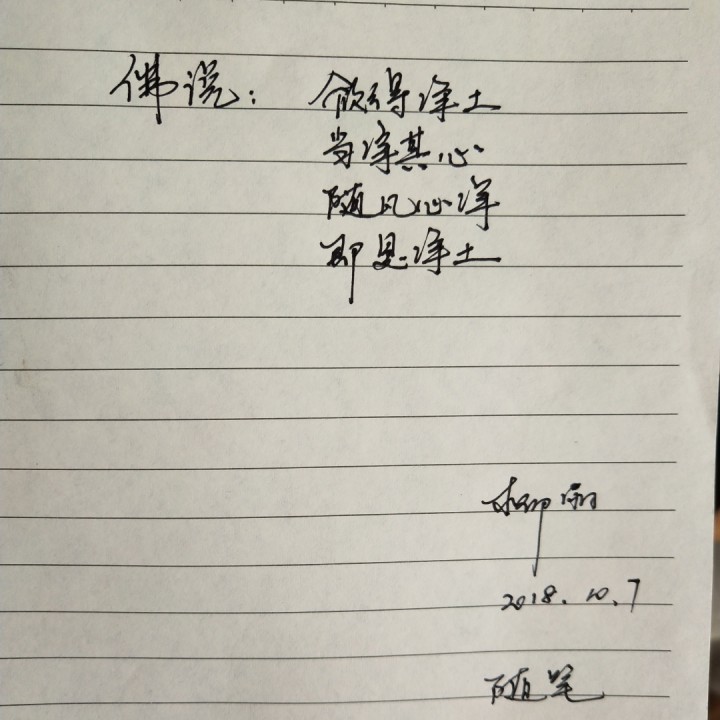 佛说：欲得净土
当净其心
随凡心净
即是净土
柳雨
2018.10.7
随笔